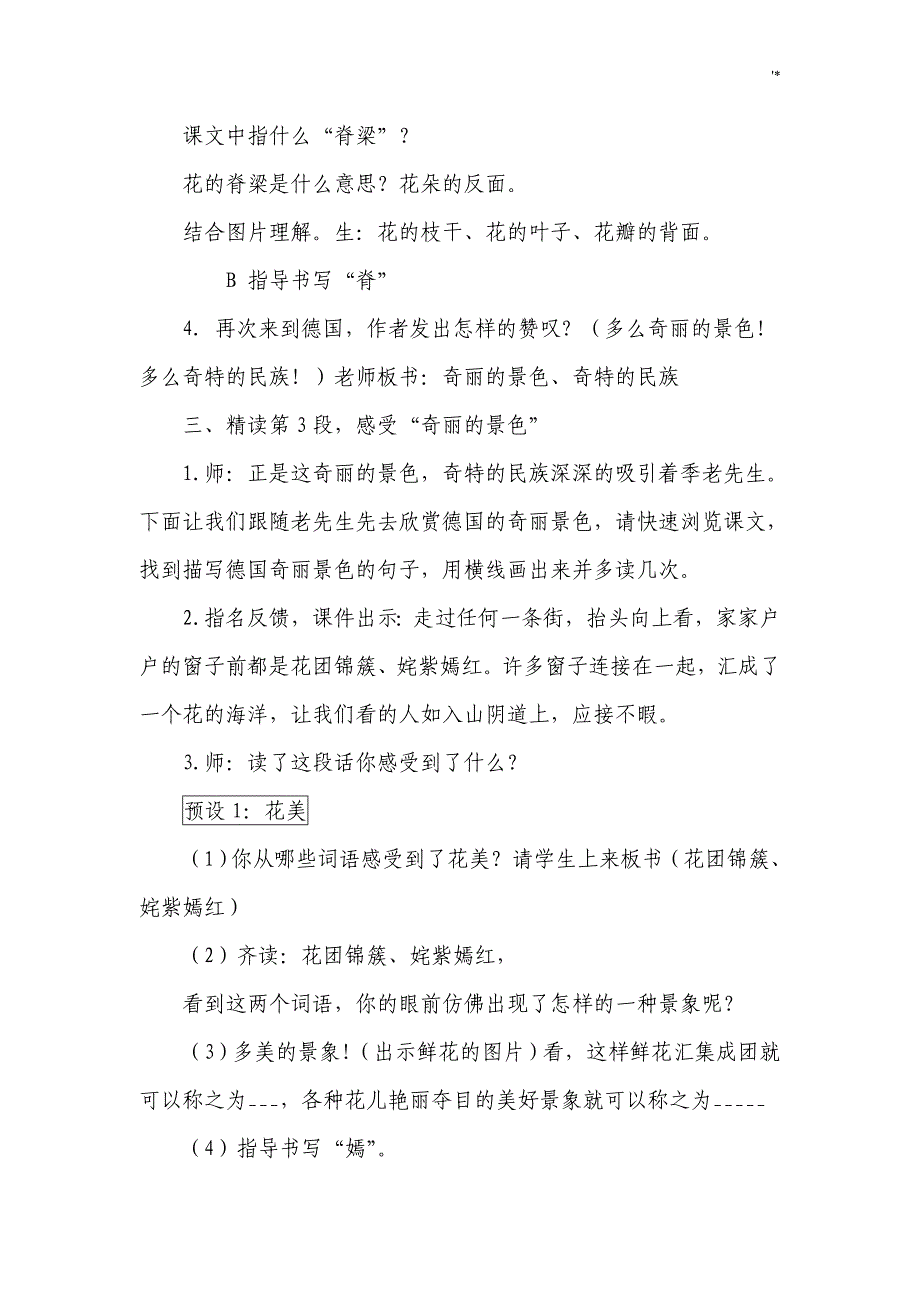 '*
课文中指什么“脊梁”？
花的脊梁是什么意思？花朵的反面。
结合图片理解。生：花的枝干、花的叶子、花瓣的背面。
B 指导书写“脊”
4. 再次来到德国，作者发出怎样的赞叹？（多么奇丽的景色！
多么奇特的民族！）老师板书：奇丽的景色、奇特的民族
三、精读第 3 段，感受“奇丽的景色”
1.师：正是这奇丽的景色，奇特的民族深深的吸引着季老先生。
下面让我们跟随老先生先去欣赏德国的奇丽景色，请快速浏览课文，
找到描写德国奇丽景色的句子，用横线画出来并多读几次。
2.指名反馈，课件出示：走过任何一条街，抬头向上看，家家户
户的窗子前都是花团锦簇、姹紫嫣红。许多窗子连接在一起，汇成了
一个花的海洋，让我们看的人如入山阴道上，应接不暇。
3.师：读了这段话你感受到了什么？
预设 1：花美
（1）你从哪些词语感受到了花美？请学生上来板书（花团锦簇、
姹紫嫣红）
（2）齐读：花团锦簇、姹紫嫣红，
看到这两个词语，你的眼前仿佛出现了怎样的一种景象呢？
（3）多美的景象！（出示鲜花的图片）看，这样鲜花汇集成团就
可以称之为___，各种花儿艳丽夺目的美好景象就可以称之为_____
（4）指导书写“嫣”。